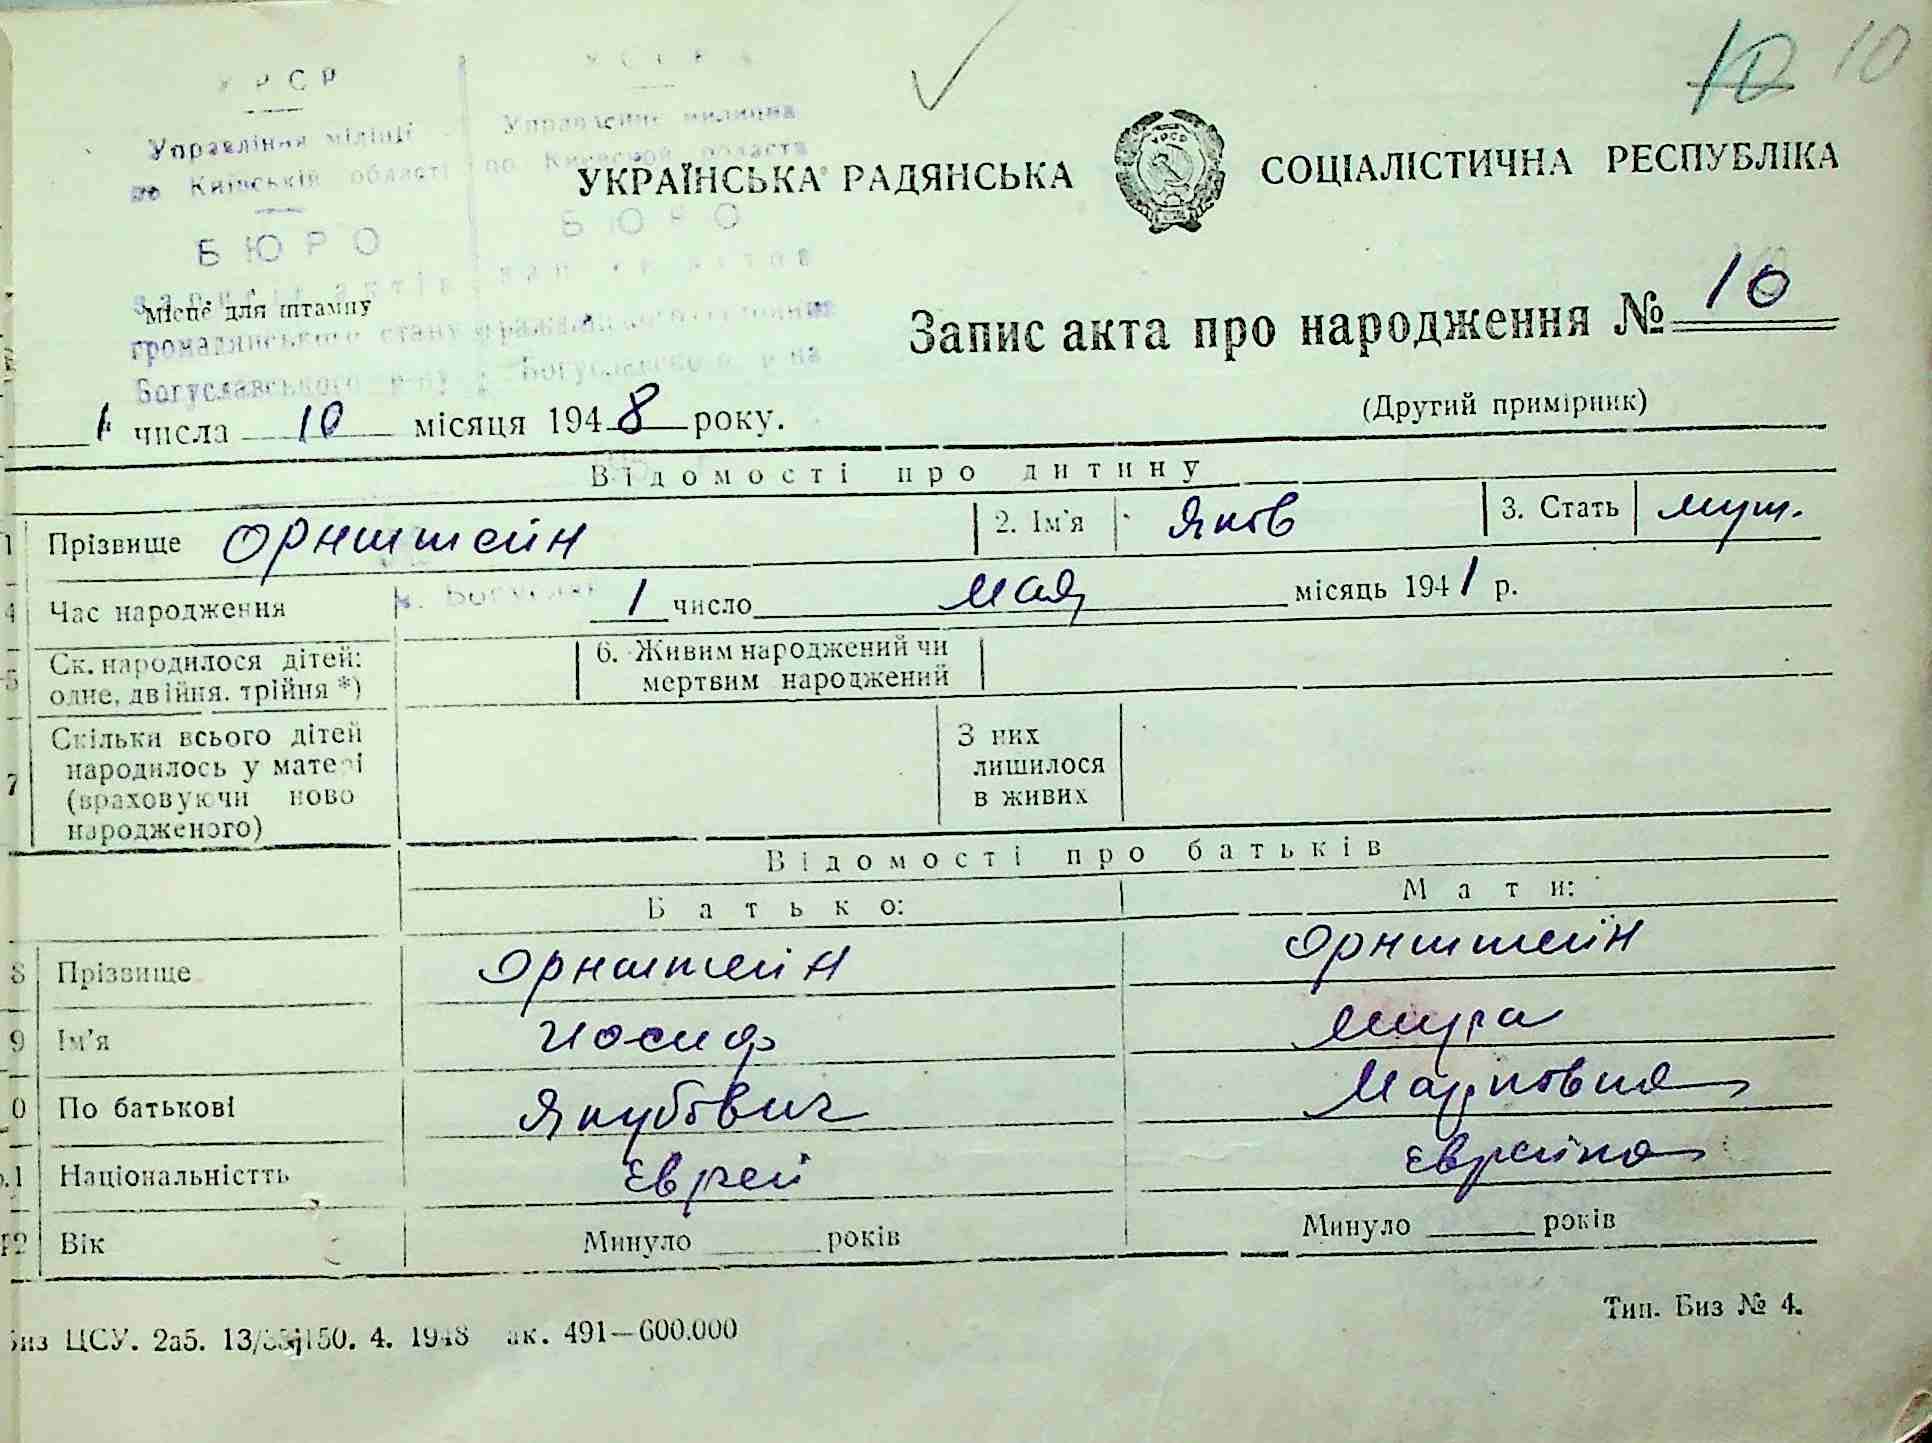 10 10
УРСР
Управління міліції
по Київській області
БЮРО
записів актів
громадянського стану
Богуславського р-ну
УССР
Управление милиции
по Киевской области
БЮРО
Богуславского р-на
УКРАЇНСЬКА РАДЯНСЬКА СОЦІАЛІСТИЧНА РЕСПУБЛІКА
УРСР
Місце для штампу
Запис акта про народження № 10
(Другий примірник)
1 числа 10 місяця 1948 року.
Відомості про дитину
1 Прізвище Орнштейн 2. Ім'я Яков 3. Стать муж.
4 Час народження 1 число мая місяць 1941 р.
5 Ск. народилося дітей: одне, двійня. трійня *) 6. Живим народжений чи мертвим народжений
7 Скільки всього дітей народилось у матері (враховуючи ново народженого) З них лишилося в живих
Відомості про батьків
Батько: Мати:
8 Прізвище Орнштейн Орнштейн
9 Ім'я Иосиф Мира
0 По батькові Якубович Марковна
.1 Національністть Еврей Еврейка
12 Вік Минуло ____ років Минуло ____ років
ЦСУ. 2аб. 4. 1948 ак. 491—600.000
Тип. Биз № 4.